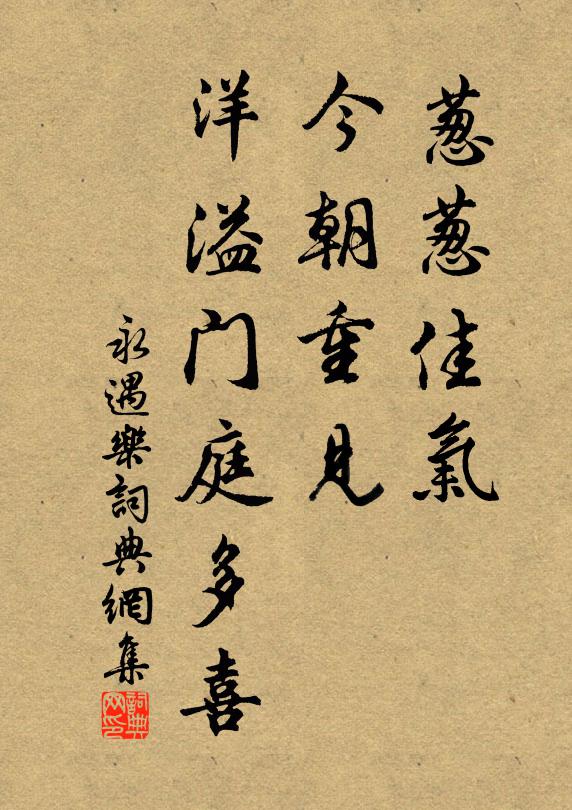 葱葱佳氣
今朝重見
洋溢门庭多喜
永遇樂詞典網集
詞典
网印